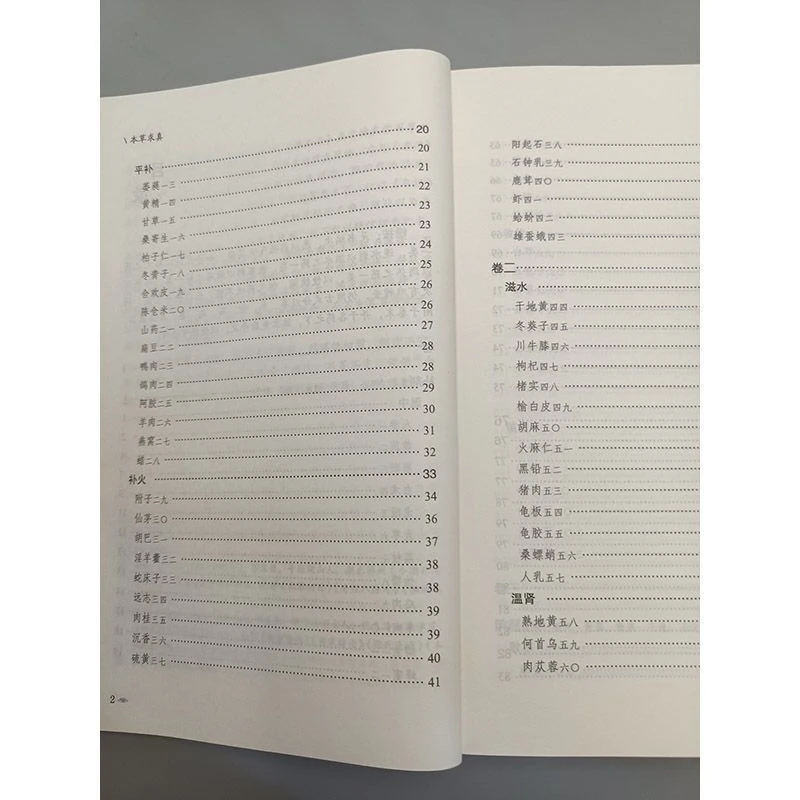 \本草求真
平补 20
萎蕤一三 20
黄精一四 21
甘草一五 22
桑寄生一六 23
柏子仁一七 23
冬青子一八 24
合欢皮一九 25
陈仓米二〇 26
山药二一 26
扁豆二二 27
鸭肉二三 28
鸽肉二四 28
阿胶二五 29
羊肉二六 30
燕窝二七 31
蜡二八 32
补火 33
附子二九 34
仙茅三〇 36
胡巴三一 37
淫羊藿三二 38
蛇床子三三 38
远志三四 39
肉桂三五 39
沉香三六 40
硫黄三七 41
2
阳起石三八
石钟乳三九
鹿茸四〇
虾四一
蛤蚧四二
雄蚕蛾四三
卷二
滋水
干地黄四四
冬葵子四五
川牛膝四六
枸杞四七
楮实四八
榆白皮四九
胡麻五〇
火麻仁五一
黑铅五二
猪肉五三
龟板五四
龟胶五五
桑螵蛸五六
人乳五七
温肾
熟地黄五八
何首乌五九
肉苁蓉六〇